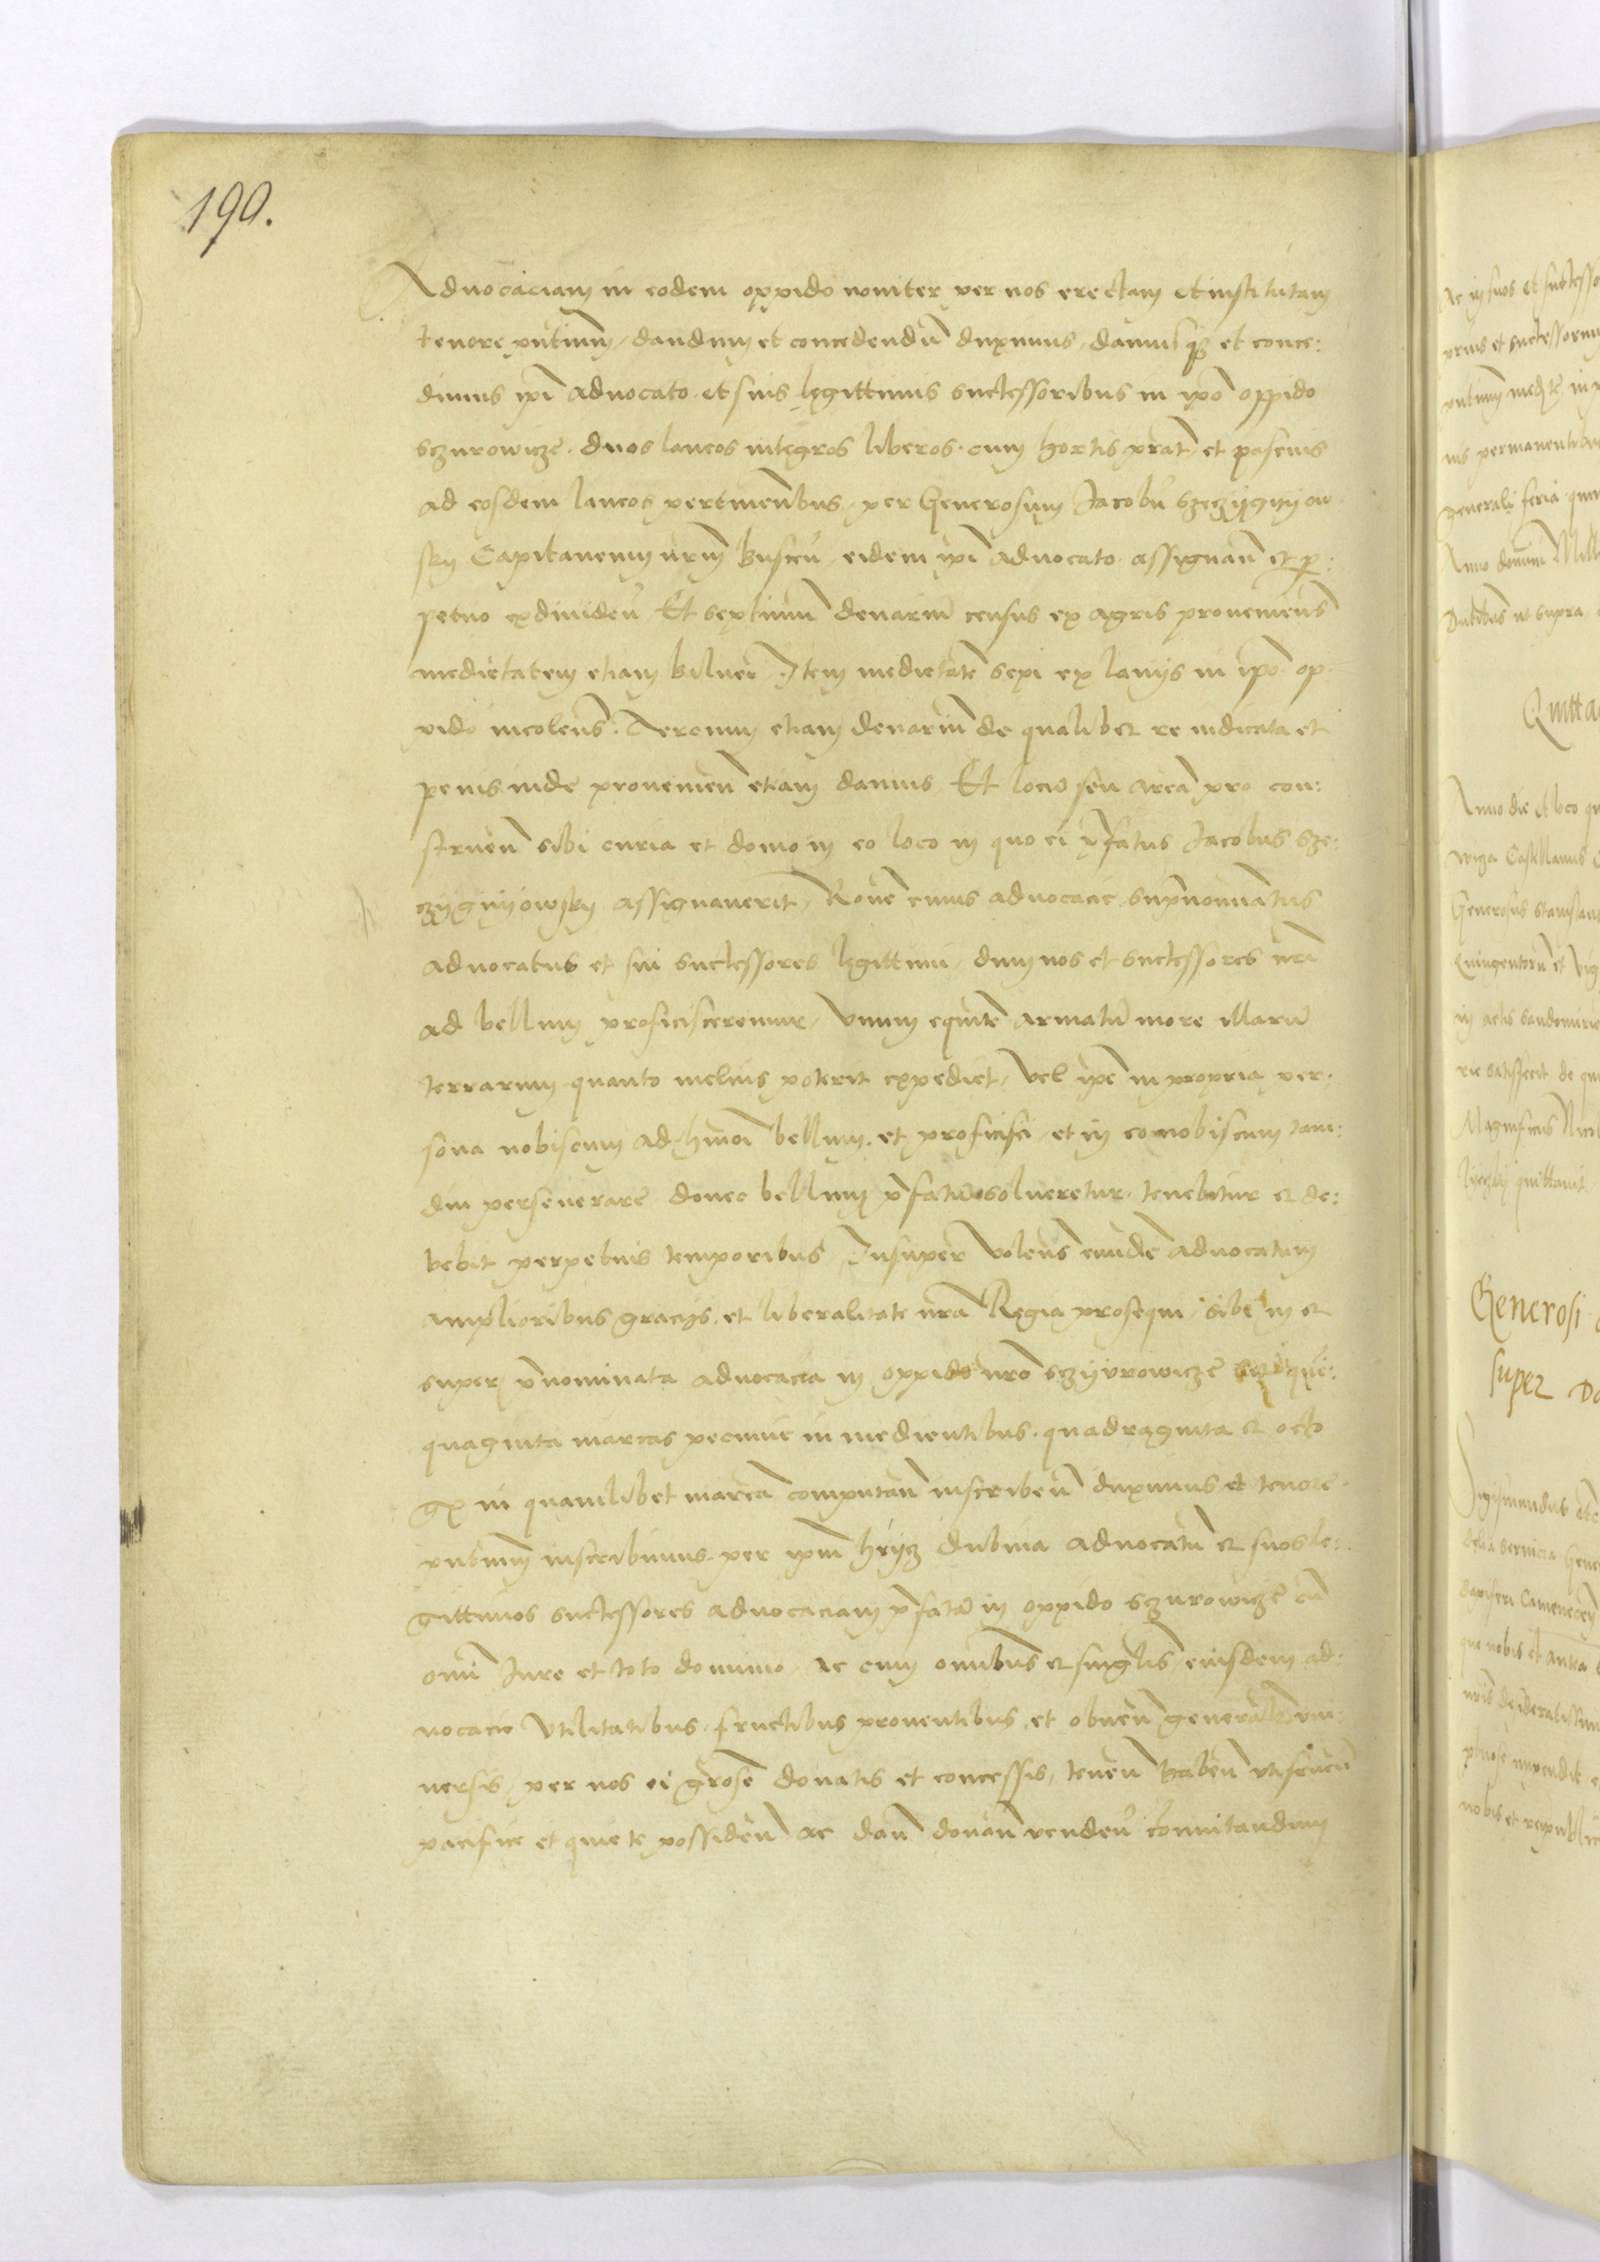 190.
Aduocaciam in eodem oppido nouiter per nos erectam et institutam
tenore pñtium, dandum et concedendū duximus, damusq3 et conce:
dimus ipī aduocato et suis legittimis successoribus in ipō oppido
sczurowicze duos laneos integros liberos cum hortis prat et pascuis
ad eosdem laneos pertineñ̄bus, per Generosum Jacobū
sky Capitaneum nrm̄ buscū, eidem ipī aduocato assignan̄ et p:
petuo exdividen̄ Et sextimum denarium census ex agris proueniens̄
medietatem etiam Item medietatē sepi ex laniis in ipō op:
pido incolens̄. Tercium etiam denariū de qualibet re iudicata et
penis inde prouenien̄ etiam damus Et locū seu areā pro con:
struen̄ sibi curia et domo in eo loco in quo ei p̄fatus Jacobus Sze:
czygnyowsky assignauerit, Rōne cuius aduocacie supanominatus
aduocatus et sui successores legittimi, dum nos et successores nr̄i
ad bellum proficisceremur, Vnum equitē armatū more illarū
terrarum quanto melius poterit expediet, Vel ipē in propria per:
sona nobiscum ad hm̄oi bellum et proficisci, et in eo nobiscum tam:
diu perseuerare donec bellum p̄fatū solueretur, tenebitur et de:
bebit perpetuis temporibus, Insuper Volens̄ eundē aduocatum
amplioribus graciis et liberalitate nr̄a Regia prosequi, sibi in et
super p̄nominata aduocacia in oppido nrō sczyurowicze quin:
quaginta marcas pecunie in medientibus quadraginta et octo
gr in quamlibet marcā computan̄ inscriben̄ duximus et tenore
pn̄tium inscribimus per ipm̄ hrycz dubina aduocatū et suos le:
gittimos successores aduocaciam p̄fatā in oppido sczurowicze cū
omn̄i Iure et toto dominio, ac cum omn̄ibus et singlis̄ eiusdem ad:
uocacie Vtilitatibus, fructibus prouentibus et obuen̄ generalr̄ vni:
uersis, per nos ei grose donatis et concessis, tenen̄ haben̄ vtifruen̄
pacifice et quiete possiden̄ ac dan̄ donan̄ venden̄ com̄utandum
ac in suos et successo
prius et successorum
pn̄tium
nis permanentibus
generali feria
Anno domini Mill
Dat̄ibus ut supra
Quitta
Anno die et loco
Castellanus
Generosus Stanisla
Quingentorū et vig
in actis sandomirie
rie satisfecit de
Magnificus Nicol
quittauit
Generosi
super
Sigismundus
seruicia Gene
dapiferi Camenecen̄
que nobis et
nobis et reipublice